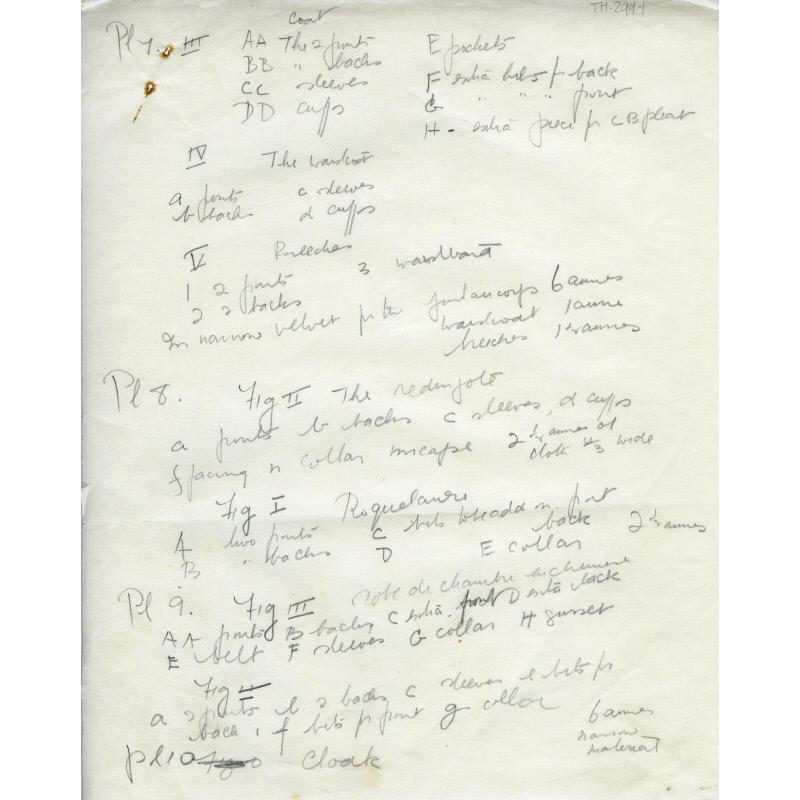 TH-299-1
Pl 7. III coat AA The 2 fronts E pockets
BB " backs F extra bits fr back
CC sleeves G " " " front
DD cuffs H - extra piece fr CB pleat
IV The waistcoat
a fronts c sleeves
b backs d cuffs
V Breeches
1 2 fronts 3 waistband
2 2 backs
In narrow velvet for the justaucorps 6 aunes
waistcoat 1 aune
breeches 1½ aunes
Pl 8. Fig II The redingote
a fronts b backs c sleeves, d cuffs
f facing n collar m cape 2½ aunes of
cloth 4/3 wide
Fig I Roquelaure
A two fronts C bits to add on front
B " backs D back 2½ aunes
E collar
Pl 9. Fig III robe de chambre en chemise
AA fronts B backs C extra front D extra back
E belt F sleeves G collar H gusset
Fig
a 2 fronts b 2 backs c sleeves e bits fr
back, f bits fr front g collar
6 aunes
narrow
material
pl 10 Cloak